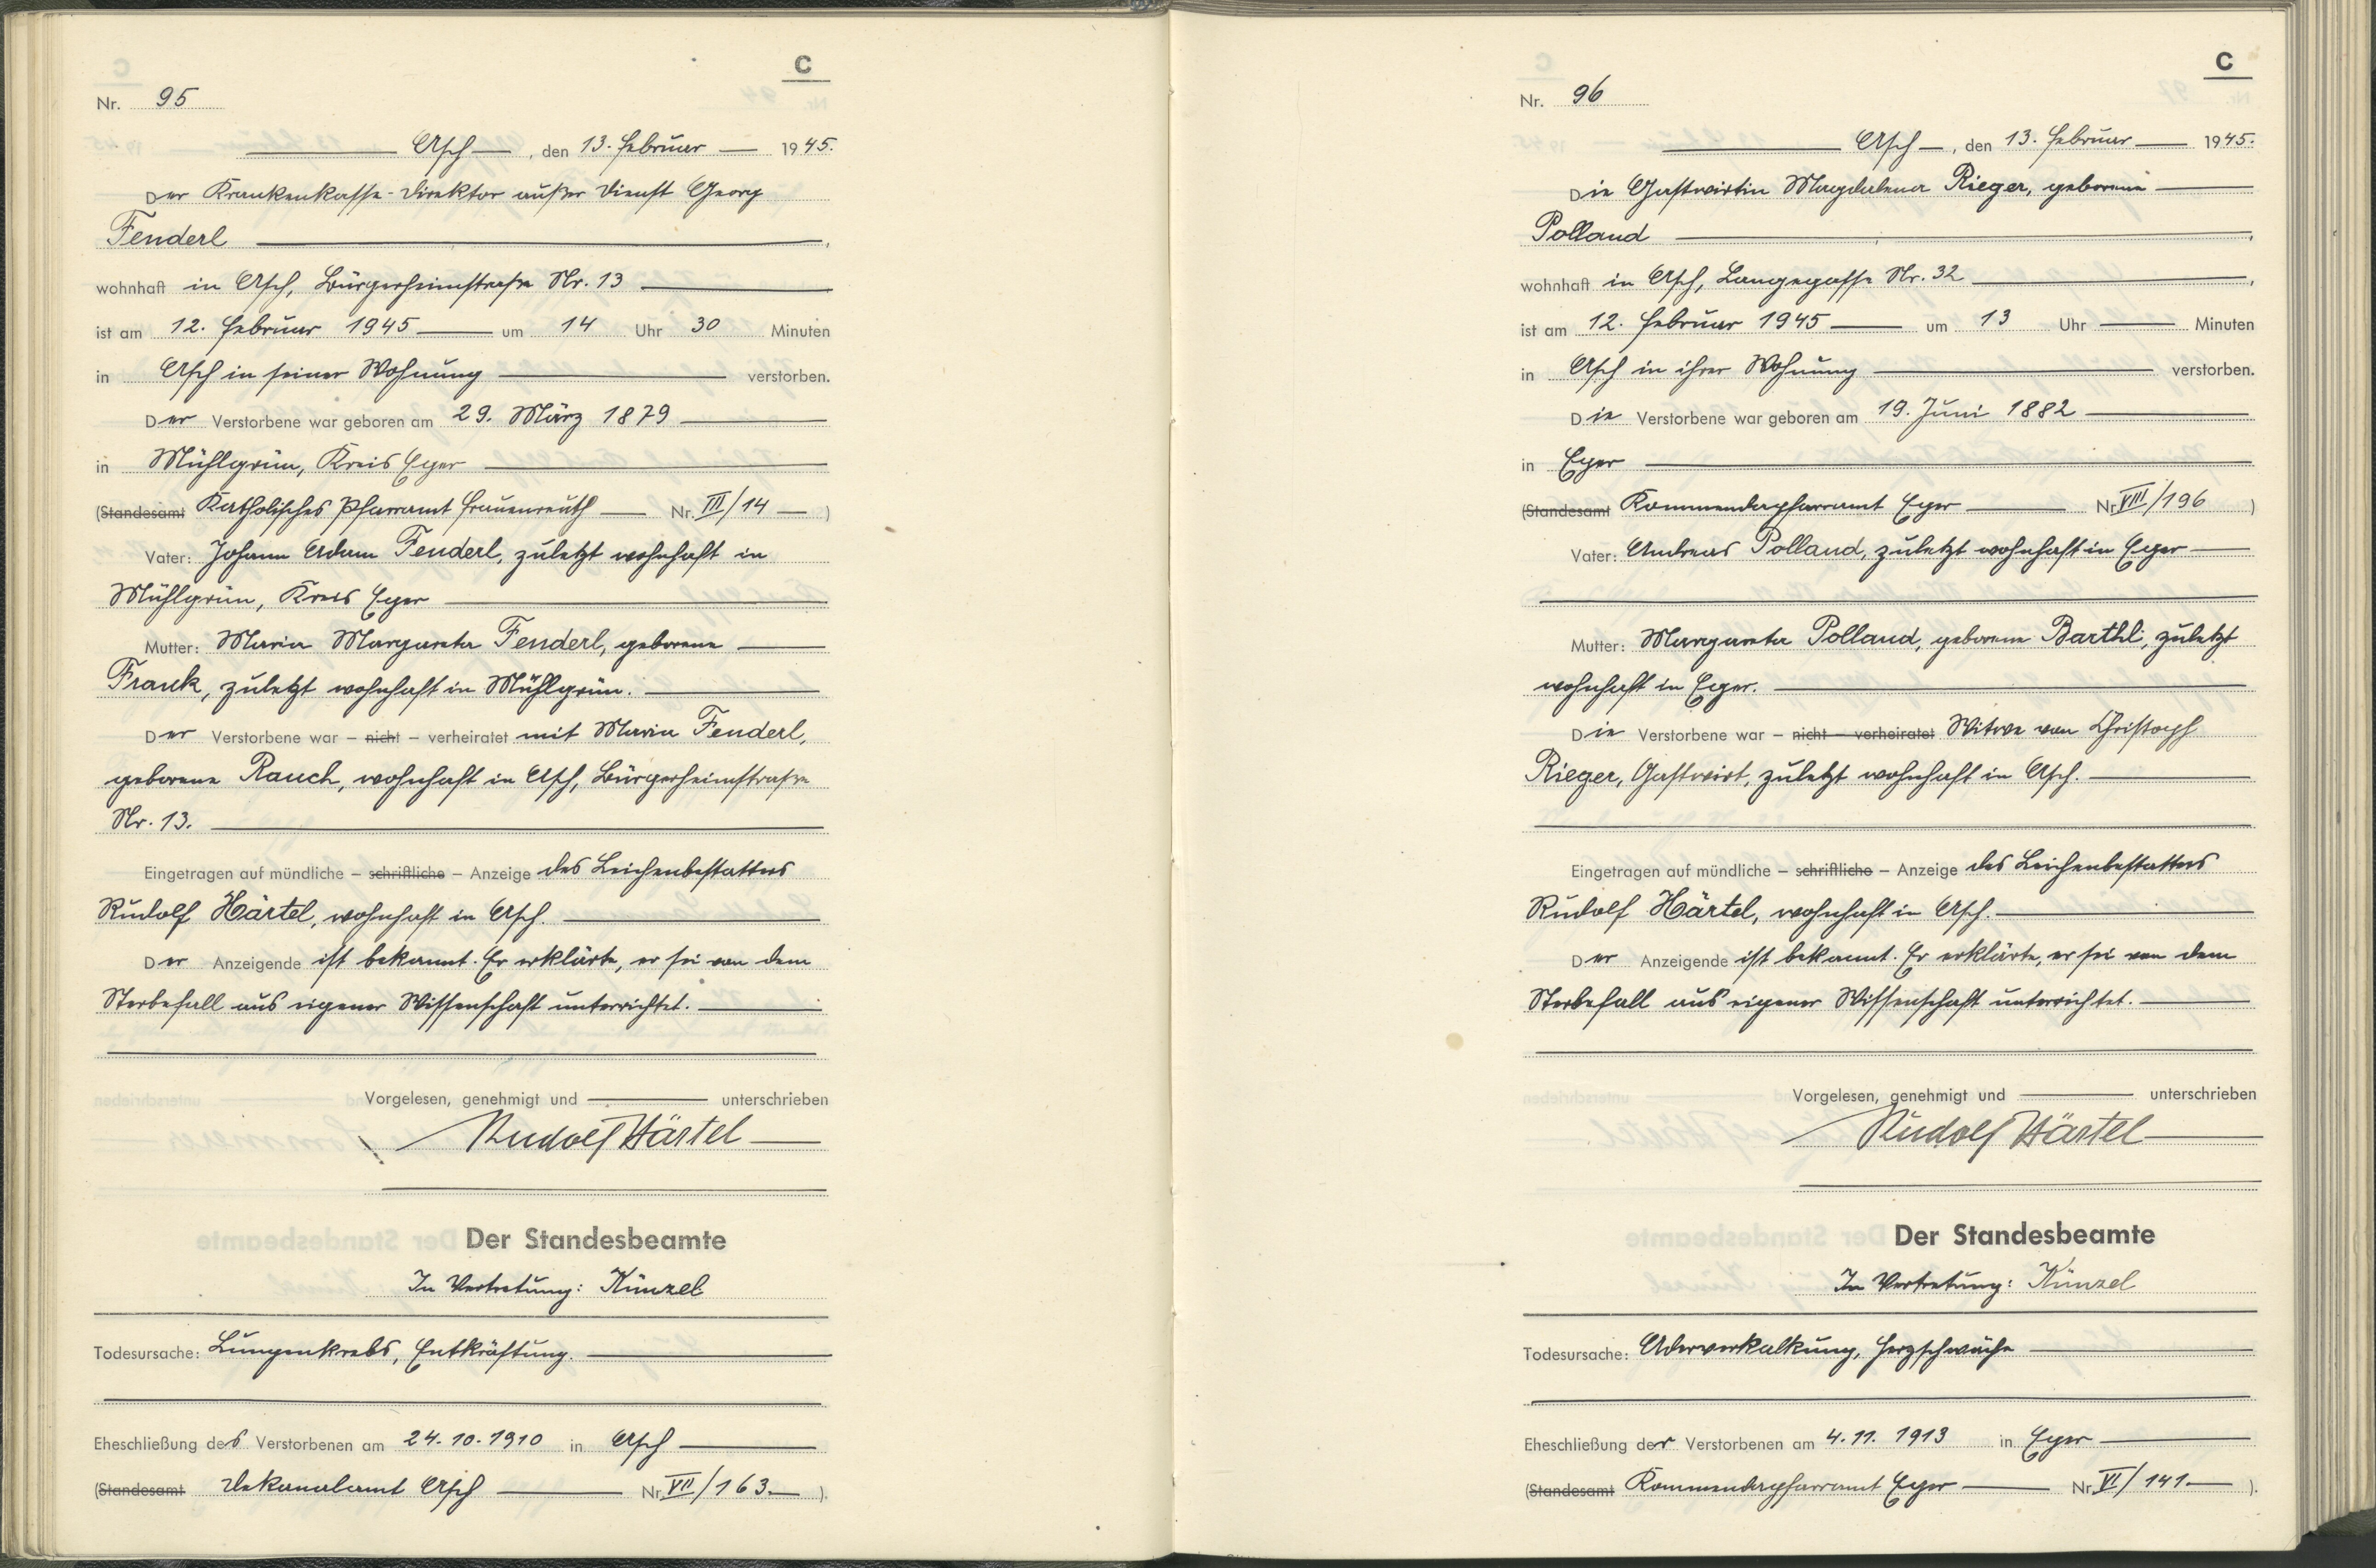 C
Nr. 95
Asch, den 13. Februar 1945.
Der Krankenkasse-Direktor außer Dienst Georg
Fenderl,
wohnhaft in Asch, Bürgerheimstraße Nr. 13
ist am 12. Februar 1945 um 14 Uhr 30 Minuten
in Asch in seiner Wohnung verstorben.
Der Verstorbene war geboren am 29. März 1879
in Mühlgrün, Kreis Eger
(Standesamt Katholisches Pfarramt Frauenreuth Nr. III/14)
Vater: Johann Adam Fenderl, zuletzt wohnhaft in
Mühlgrün, Kreis Eger
Mutter: Maria Margareta Fenderl, geborene
Frank, zuletzt wohnhaft in Mühlgrün.
Der Verstorbene war – nicht – verheiratet mit Maria Fenderl,
geborene Rauch, wohnhaft in Asch, Bürgerheimstraße
Nr. 13.
Eingetragen auf mündliche – schriftliche – Anzeige des Leichenbestatters
Rudolf Härtel, wohnhaft in Asch.
Der Anzeigende ist bekannt. Er erklärte, er sei von dem
Sterbefall aus eigener Wissenschaft unterrichtet.
Vorgelesen, genehmigt und unterschrieben
Rudolf Härtel
Der Standesbeamte
In Vertretung: Künzel
Todesursache: Lungenkrebs, Entkräftung.
Eheschließung des Verstorbenen am 24.10.1910 in Asch
(Standesamt Dekanalamt Asch Nr. VII/163.).
C
Nr. 96
Asch, den 13. Februar 1945.
Die Gastwirtin Magdalena Rieger, geborene
Polland,
wohnhaft in Asch, Langegasse Nr. 32,
ist am 12. Februar 1945 um 13 Uhr Minuten
in Asch in ihrer Wohnung verstorben.
Die Verstorbene war geboren am 19. Juni 1882
in Eger
(Standesamt Kommendapfarramt Eger Nr. VIII/196)
Vater: Andreas Polland, zuletzt wohnhaft in Eger
Mutter: Margareta Polland, geborene Barthl, zuletzt
wohnhaft in Eger.
Die Verstorbene war – nicht – verheiratet Witwe von Christoph
Rieger, Gastwirt, zuletzt wohnhaft in Asch.
Eingetragen auf mündliche – schriftliche – Anzeige des Leichenbestatters
Rudolf Härtel, wohnhaft in Asch.
Der Anzeigende ist bekannt. Er erklärte, er sei von dem
Sterbefall aus eigener Wissenschaft unterrichtet.
Vorgelesen, genehmigt und unterschrieben
Rudolf Härtel
Der Standesbeamte
In Vertretung: Künzel
Todesursache: Aderverkalkung, Herzschwäche
Eheschließung der Verstorbenen am 4.11.1913 in Eger
(Standesamt Kommendapfarramt Eger Nr. VI/141.).